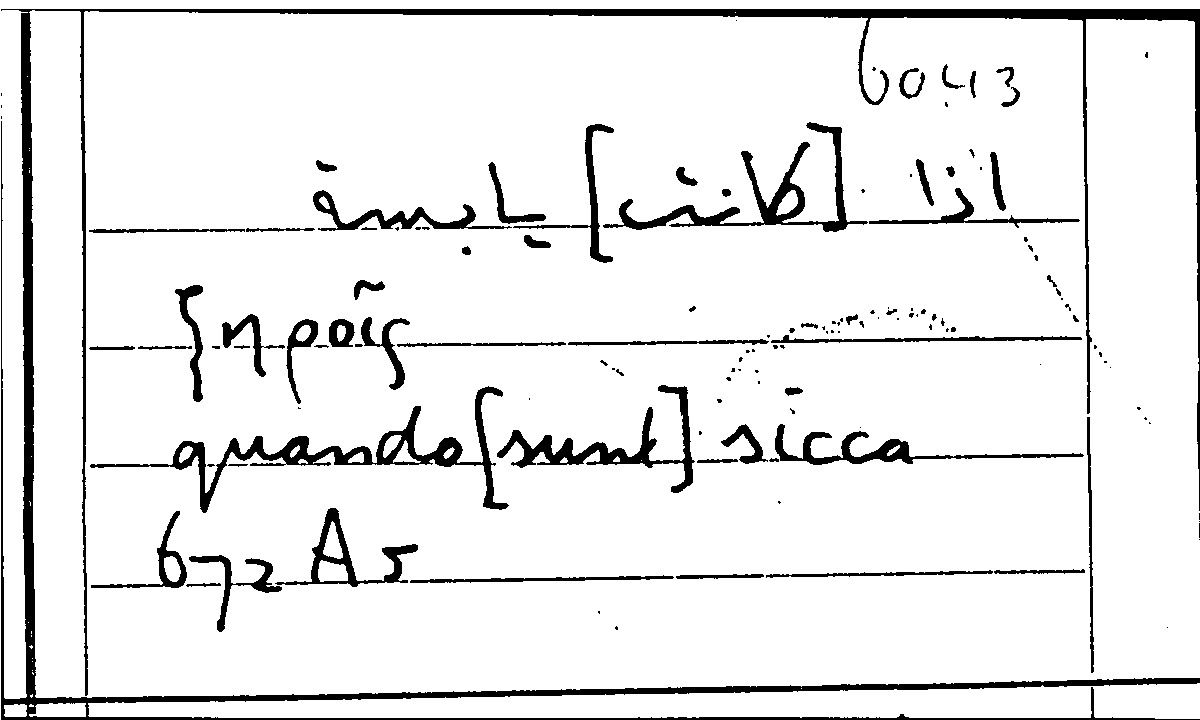 6043
اذا [كانت] يابسة
ξηροῖς
quando [sunt] sicca
672 A 5